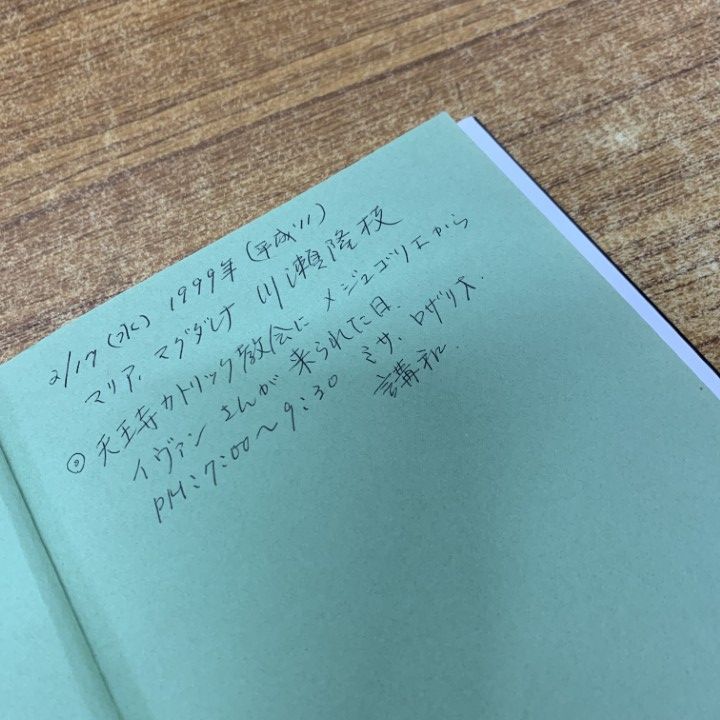 2/17 (水) 1999年 (平成11)
マリア、マグダレナ 川瀬隆枝
◎ 天王寺カトリック教会に メジュゴリエから
イヴァンさんが 来られた日.
PM:7:00～9:30 ミサ. ロザリオ.
講和.